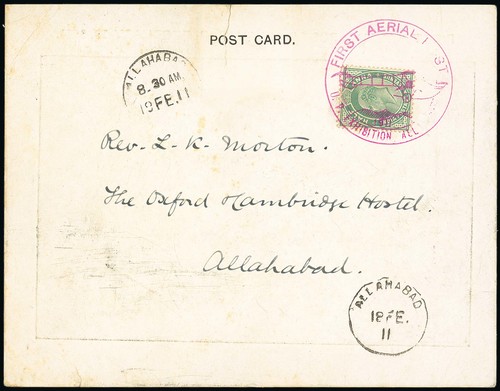 POST CARD.
ALLAHABAD
8.30 AM
18 FE.11
FIRST AERIAL
EXHIBITION ALL
Rev. L. K. Morton.
The Oxford & Cambridge Hostel.
Allahabad.
ALLAHABAD
18 FE.
11